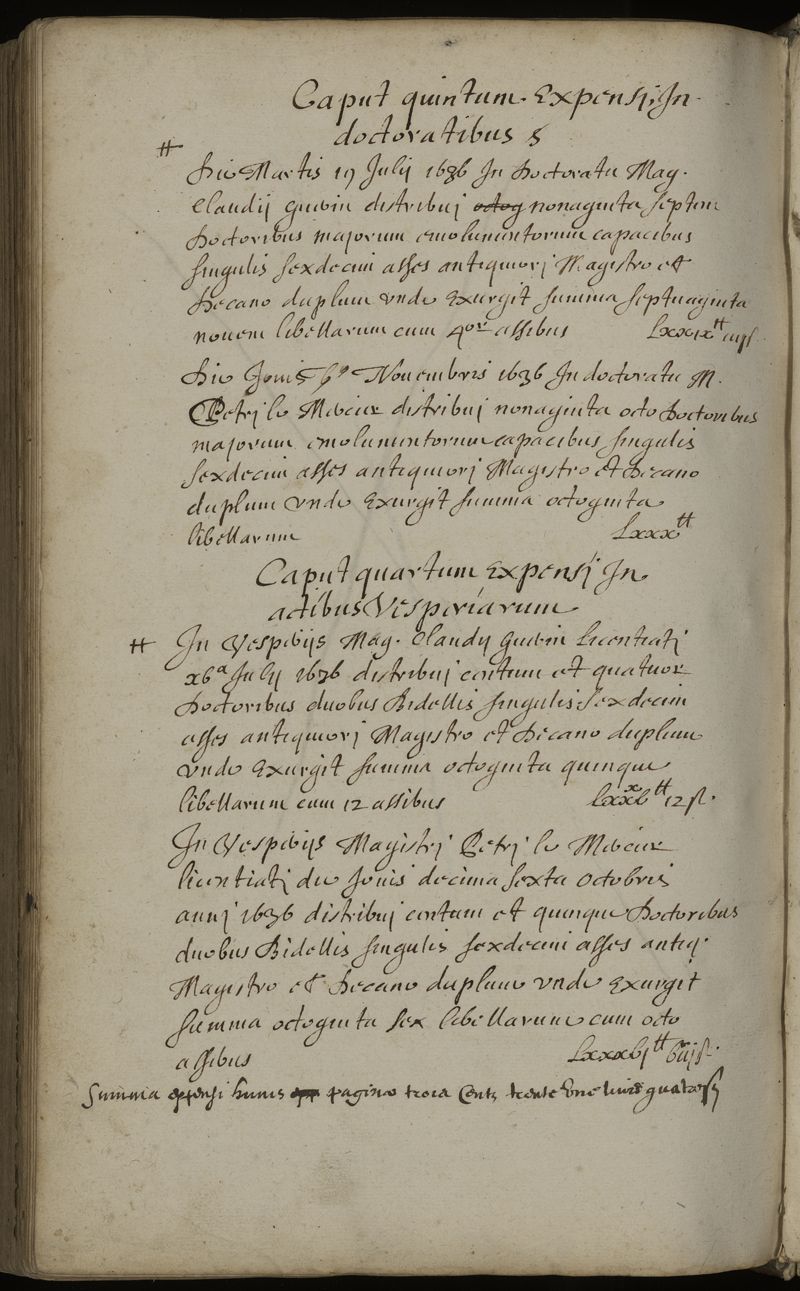 Caput quintum Expensij In
doctoratibus §
Die Martis 17 Julij 1636 In Doctoratu Mag.
Claudij Guvin distribuj octog nonaginta septem
Doctoribus majorum emolumentorum capacibus
singulis sexdecim asses antiquiorj Magistro et
Decano duplum unde Exurgit summa septuaginta
novem libellarum cum 4or assibus Lxxix tt iiij s.
Die Jovis 6a Novembris 1636 In doctoratu M.
Petrj le Mercier distribuj nonaginta octo Doctoribus
majorum emolumentorum capacibus singulis
sexdecim asses antiquiorj Magistro et Decano
duplum unde Exurgit summa octoginta
libellarum Lxxx tt
Caput quartum Expensij In
actibus Vesperiarum
In Vesperijs Mag. Claudij Guvin licentiatj
Julij 1636 distribuj centum et quatuor
Doctoribus duobus Bidellis singulis sexdecim
asses antiquiorj Magistro et Decano duplum
unde Exurgit summa octoginta quinque
libellarum cum 12 assibus Lxxxv tt 12 s.
In Vesperijs Magistrj Petrj le Mercier
licentiatj die Jovis decima sexta octobris
annj 1636 distribuj centum et quinque Doctoribus
duobus Bidellis singulis sexdecim asses antiq.
Magistro et Decano duplum unde Exurgit
summa octoginta sex libellarum cum octo
assibus Lxxxvj tt viij s.
Summa expensi huius paginae trois Centz trente une livres quatre s